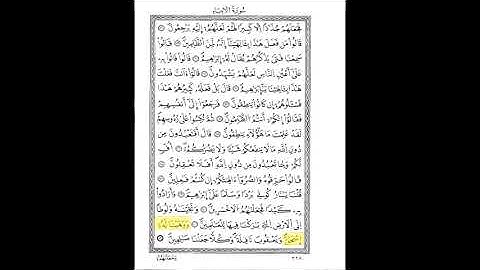 سُورَةُ الْأَنْبِيَاءِ
فَجَعَلَهُمْ جُذَٰذًا إِلَّا كَبِيرًا لَّهُمْ لَعَلَّهُمْ إِلَيْهِ يَرْجِعُونَ
قَالُوا۟ مَن فَعَلَ هَٰذَا بِـَٔالِهَتِنَآ إِنَّهُۥ لَمِنَ ٱلظَّٰلِمِينَ قَالُوا۟
سَمِعْنَا فَتًى يَذْكُرُهُمْ يُقَالُ لَهُۥٓ إِبْرَٰهِيمُ قَالُوا۟ فَأْتُوا۟ بِهِۦ
عَلَىٰٓ أَعْيُنِ ٱلنَّاسِ لَعَلَّهُمْ يَشْهَدُونَ قَالُوٓا۟ ءَأَنتَ فَعَلْتَ
هَٰذَا بِـَٔالِهَتِنَا يَٰٓإِبْرَٰهِيمُ قَالَ بَلْ فَعَلَهُۥ كَبِيرُهُمْ هَٰذَا
فَسْـَٔلُوهُمْ إِن كَانُوا۟ يَنطِقُونَ فَرَجَعُوٓا۟ إِلَىٰٓ أَنفُسِهِمْ
فَقَالُوٓا۟ إِنَّكُمْ أَنتُمُ ٱلظَّٰلِمُونَ ثُمَّ نُكِسُوا۟ عَلَىٰ رُءُوسِهِمْ
لَقَدْ عَلِمْتَ مَا هَٰٓؤُلَآءِ يَنطِقُونَ قَالَ أَفَتَعْبُدُونَ مِن
دُونِ ٱللَّهِ مَا لَا يَنفَعُكُمْ شَيْـًٔا وَلَا يَضُرُّكُمْ أُفٍّ
لَّكُمْ وَلِمَا تَعْبُدُونَ مِن دُونِ ٱللَّهِ أَفَلَا تَعْقِلُونَ
قَالُوا۟ حَرِّقُوهُ وَٱنصُرُوٓا۟ ءَالِهَتَكُمْ إِن كُنتُمْ فَٰعِلِينَ
قُلْنَا يَٰنَارُ كُونِى بَرْدًا وَسَلَٰمًا عَلَىٰٓ إِبْرَٰهِيمَ وَأَرَادُوا۟
بِهِۦ كَيْدًا فَجَعَلْنَٰهُمُ ٱلْأَخْسَرِينَ وَنَجَّيْنَٰهُ وَلُوطًا
إِلَى ٱلْأَرْضِ ٱلَّتِى بَٰرَكْنَا فِيهَا لِلْعَٰلَمِينَ وَوَهَبْنَا لَهُۥٓ
إِسْحَٰقَ وَيَعْقُوبَ نَافِلَةً وَكُلًّا جَعَلْنَا صَٰلِحِينَ
وَجَعَلْنَٰهُمْ ٣٢٨